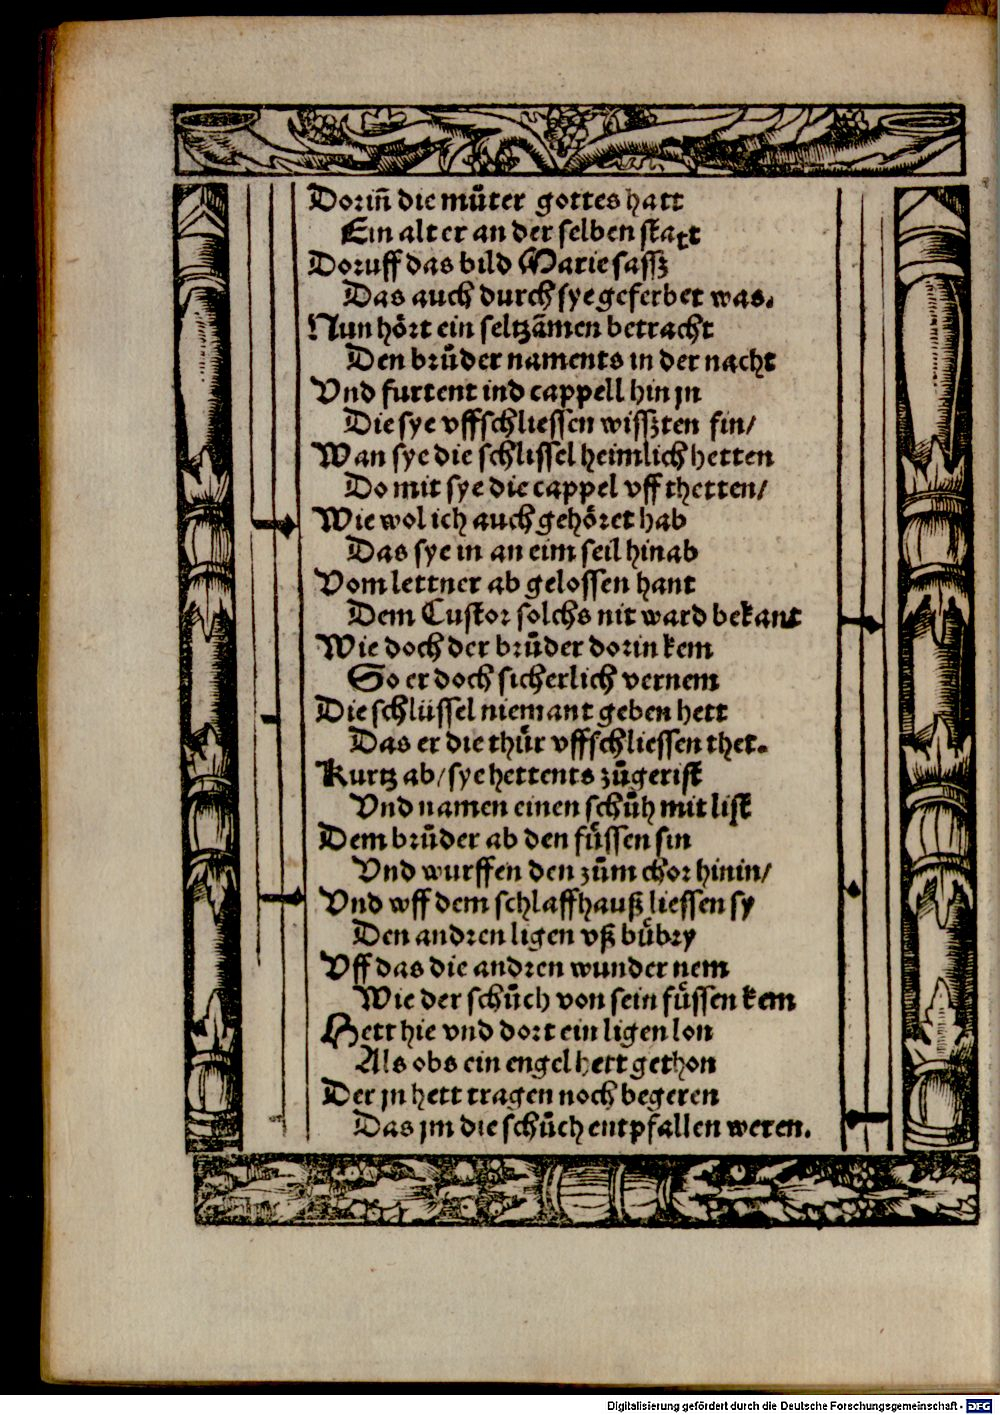 Dorin̄ die můter gottes hatt
Ein alter an der selben statt
Doruff das bild Marie sassz
Das auch durch sye geferbet was.
Nun hört ein seltzāmen betracht
Den brůder naments in der nacht
Vnd furtent ind cappell hin jn
Die sye vffschliessen wissten fin/
Wan sye die schlissel heimlich hetten
Do mit sye die cappel vff thetten/
Wie wol ich auch gehöret hab
Das sye in an eim seil hinab
Vom lettner ab gelossen hant
Dem Custor solchs nit ward bekant
Wie doch der brůder dorin kem
So er doch sicherlich vernem
Die schlüssel niemant geben hett
Das er die thür vffschliessen thet.
Kurtz ab/ sye hettents zůgerist
Vnd namen einen schůh mit list
Dem brůder ab den füssen sin
Vnd wurffen den zům chor hinin/
Vnd wff dem schlaffhauß liessen sy
Den andren ligen vß bübry
Vff das die andren wunder nem
Wie der schůch von sein füssen kem
Hett hie vnd dort ein ligen lon
Als obs ein engel hett gethon
Der jn hett tragen noch begeren
Das jm die schůch entpfallen weren.
Digitalisierung gefördert durch die Deutsche Forschungsgemeinschaft - DFG